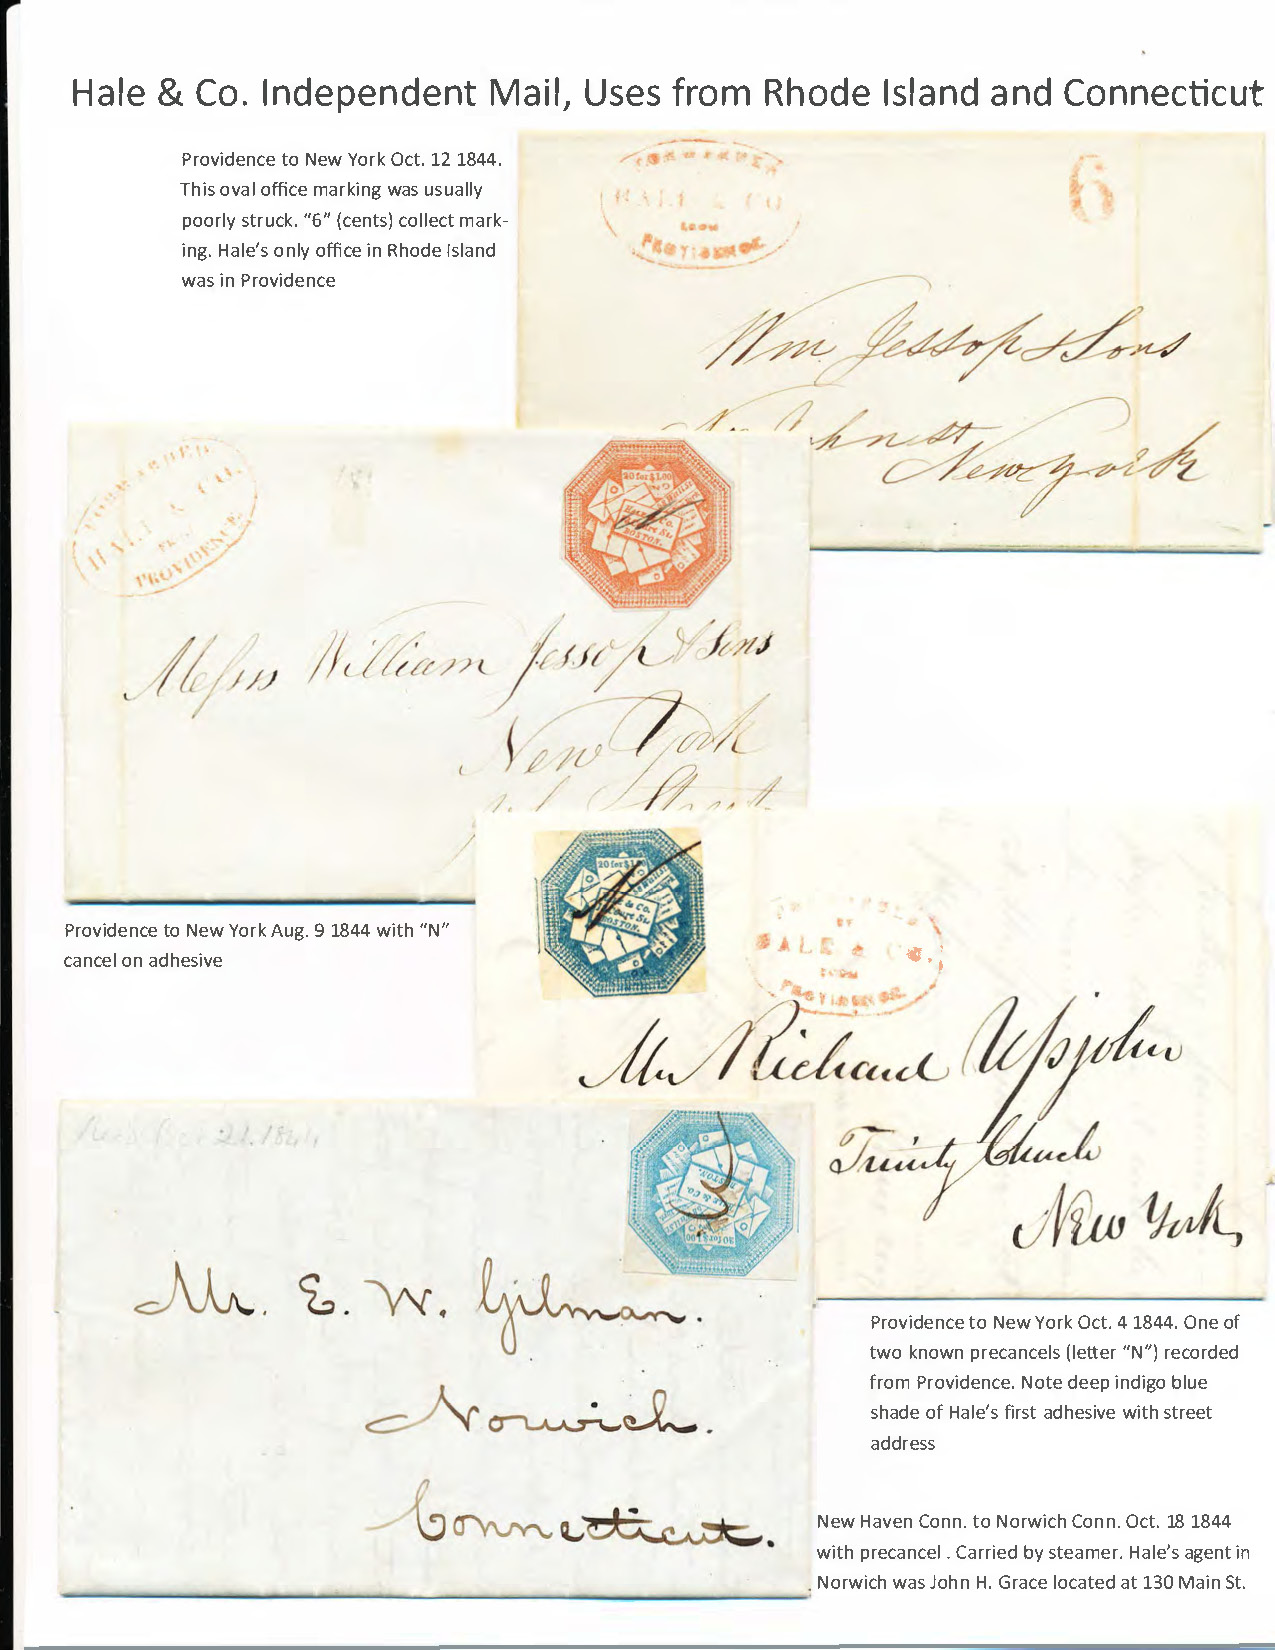 Hale & Co. Independent Mail, Uses from Rhode Island and Connecticut
Providence to New York Oct. 12 1844.
This oval office marking was usually
poorly struck. "6" (cents) collect mark-
ing. Hale's only office in Rhode Island
was in Providence
FORWARDED
HALE & CO
FROM
PROVIDENCE
6
Wm Jessop & Sons
John st
New York
FORWARDED
HALE & CO.
FROM
PROVIDENCE.
20 for $1.00
BOSTON.
Messrs William Jessop & Sons
New York
Street
Providence to New York Aug. 9 1844 with "N"
cancel on adhesive
20 for $1.00
& Co.
BOSTON.
N
BY
HALE & CO.
FROM
PROVIDENCE.
Mr Richard Upjohn
Trinity Church
New York,
21. 1844
BOSTON
& Co.
20 for $1.00
Mr. E. W. Gilman.
Norwich.
Connecticut.
Providence to New York Oct. 4 1844. One of
two known precancels (letter "N") recorded
from Providence. Note deep indigo blue
shade of Hale's first adhesive with street
address
New Haven Conn. to Norwich Conn. Oct. 18 1844
with precancel . Carried by steamer. Hale's agent in
Norwich was John H. Grace located at 130 Main St.